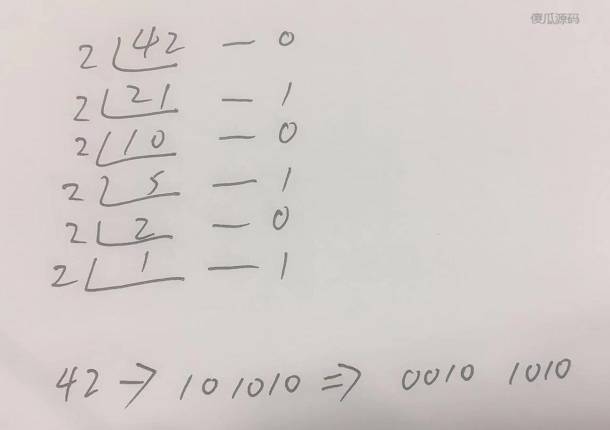 傻瓜源码
2 42 — 0
2 21 — 1
2 10 — 0
2 5 — 1
2 2 — 0
2 1 — 1
42 → 101010 ⇒ 0010 1010